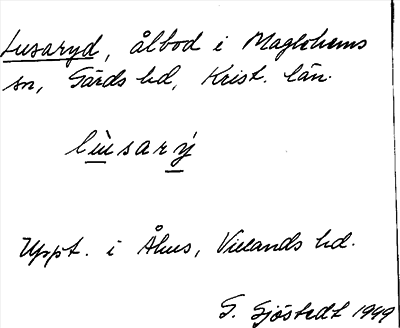 Lusaryd, ålbod i Maglehems
sn, Gärds hd, Krist. län.
lùsarý
Uppt. i Åhus, Villands hd.
G. Sjöstedt 1949